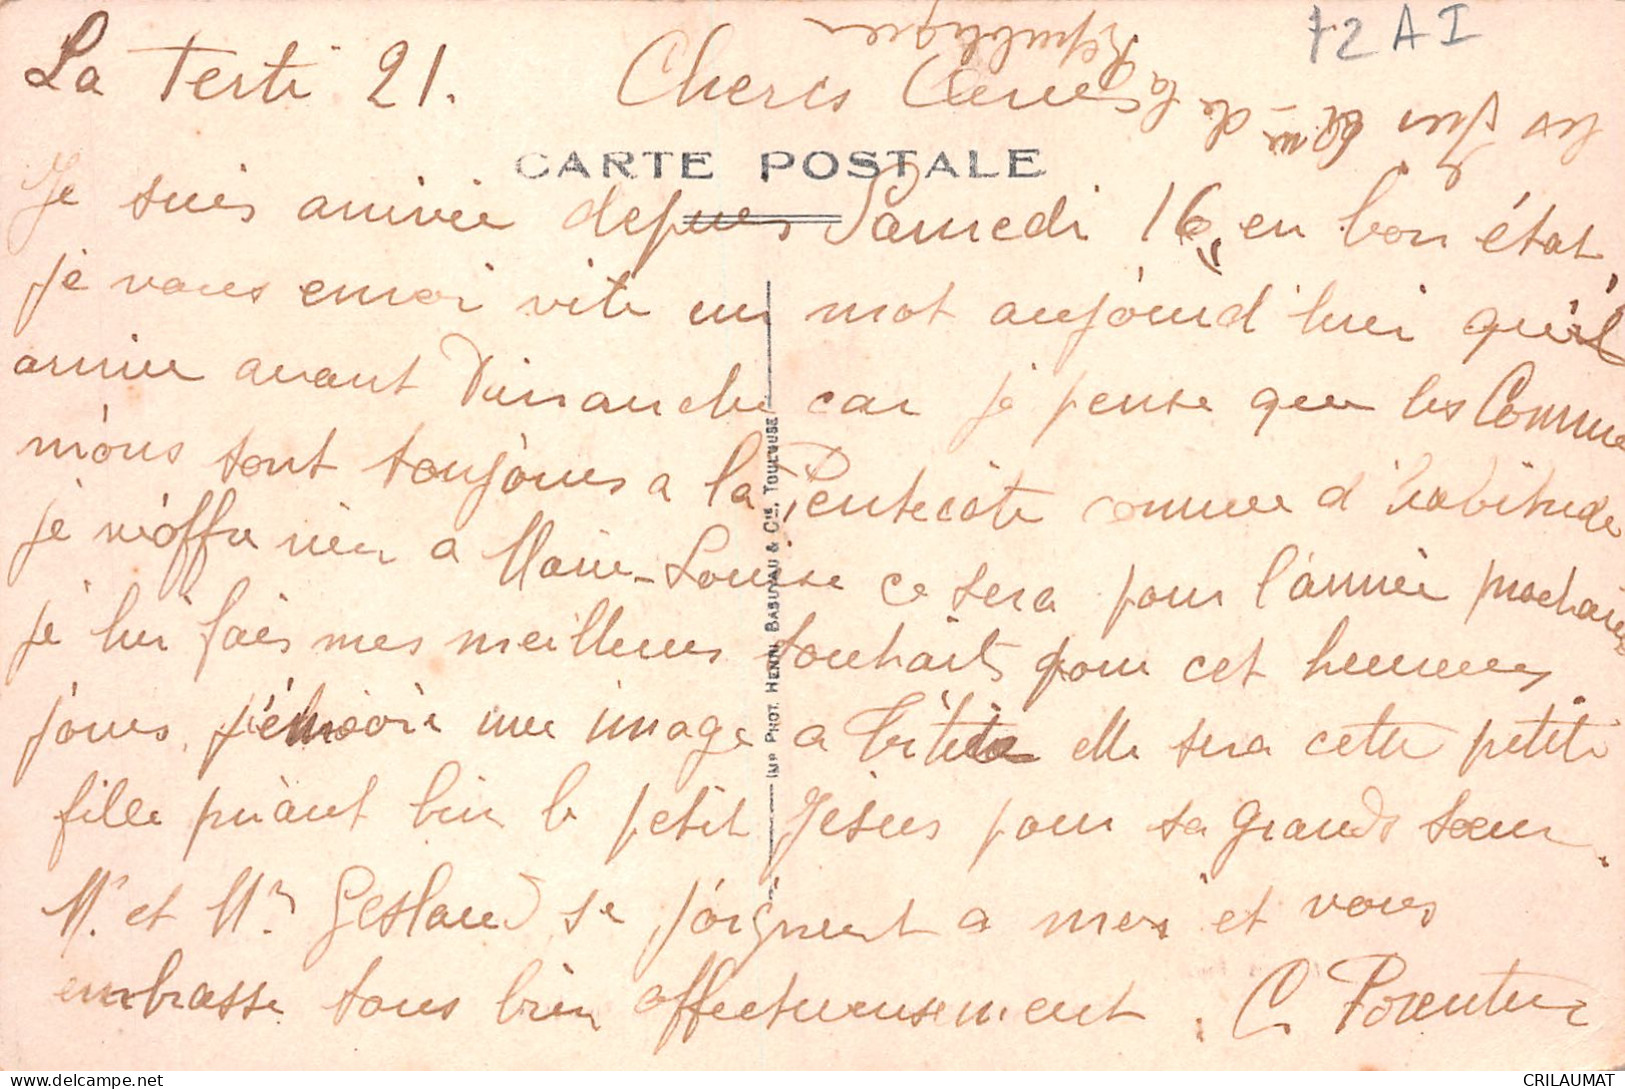 72 A I
La Teste 21. Cheres Amies
CARTE POSTALE
Je suis arrivée depues Samedi 16 en bon état
je vous envoi vite un mot aujourd'hui qu'il
arrive avant Dimanche car je pense que les Commu
nions sont toujours a la Pentecote comme d'habitude
je n'offre rien a Marie-Louise ce sera pour l'année prochaine
je lui fais mes meilleurs souhaits pour cet heureux
jours. j'envoie une image a elle sera cette petite
fille priant bien le petit Jésus pour sa grande sœur.
Mr et Mm Geslaud se joignent a moi et vous
embrasse tous bien affectueusement. C.
de la République
IMP. PHOT. HENRI BASUYAU & Cie, TOULOUSE
CRILAUMAT